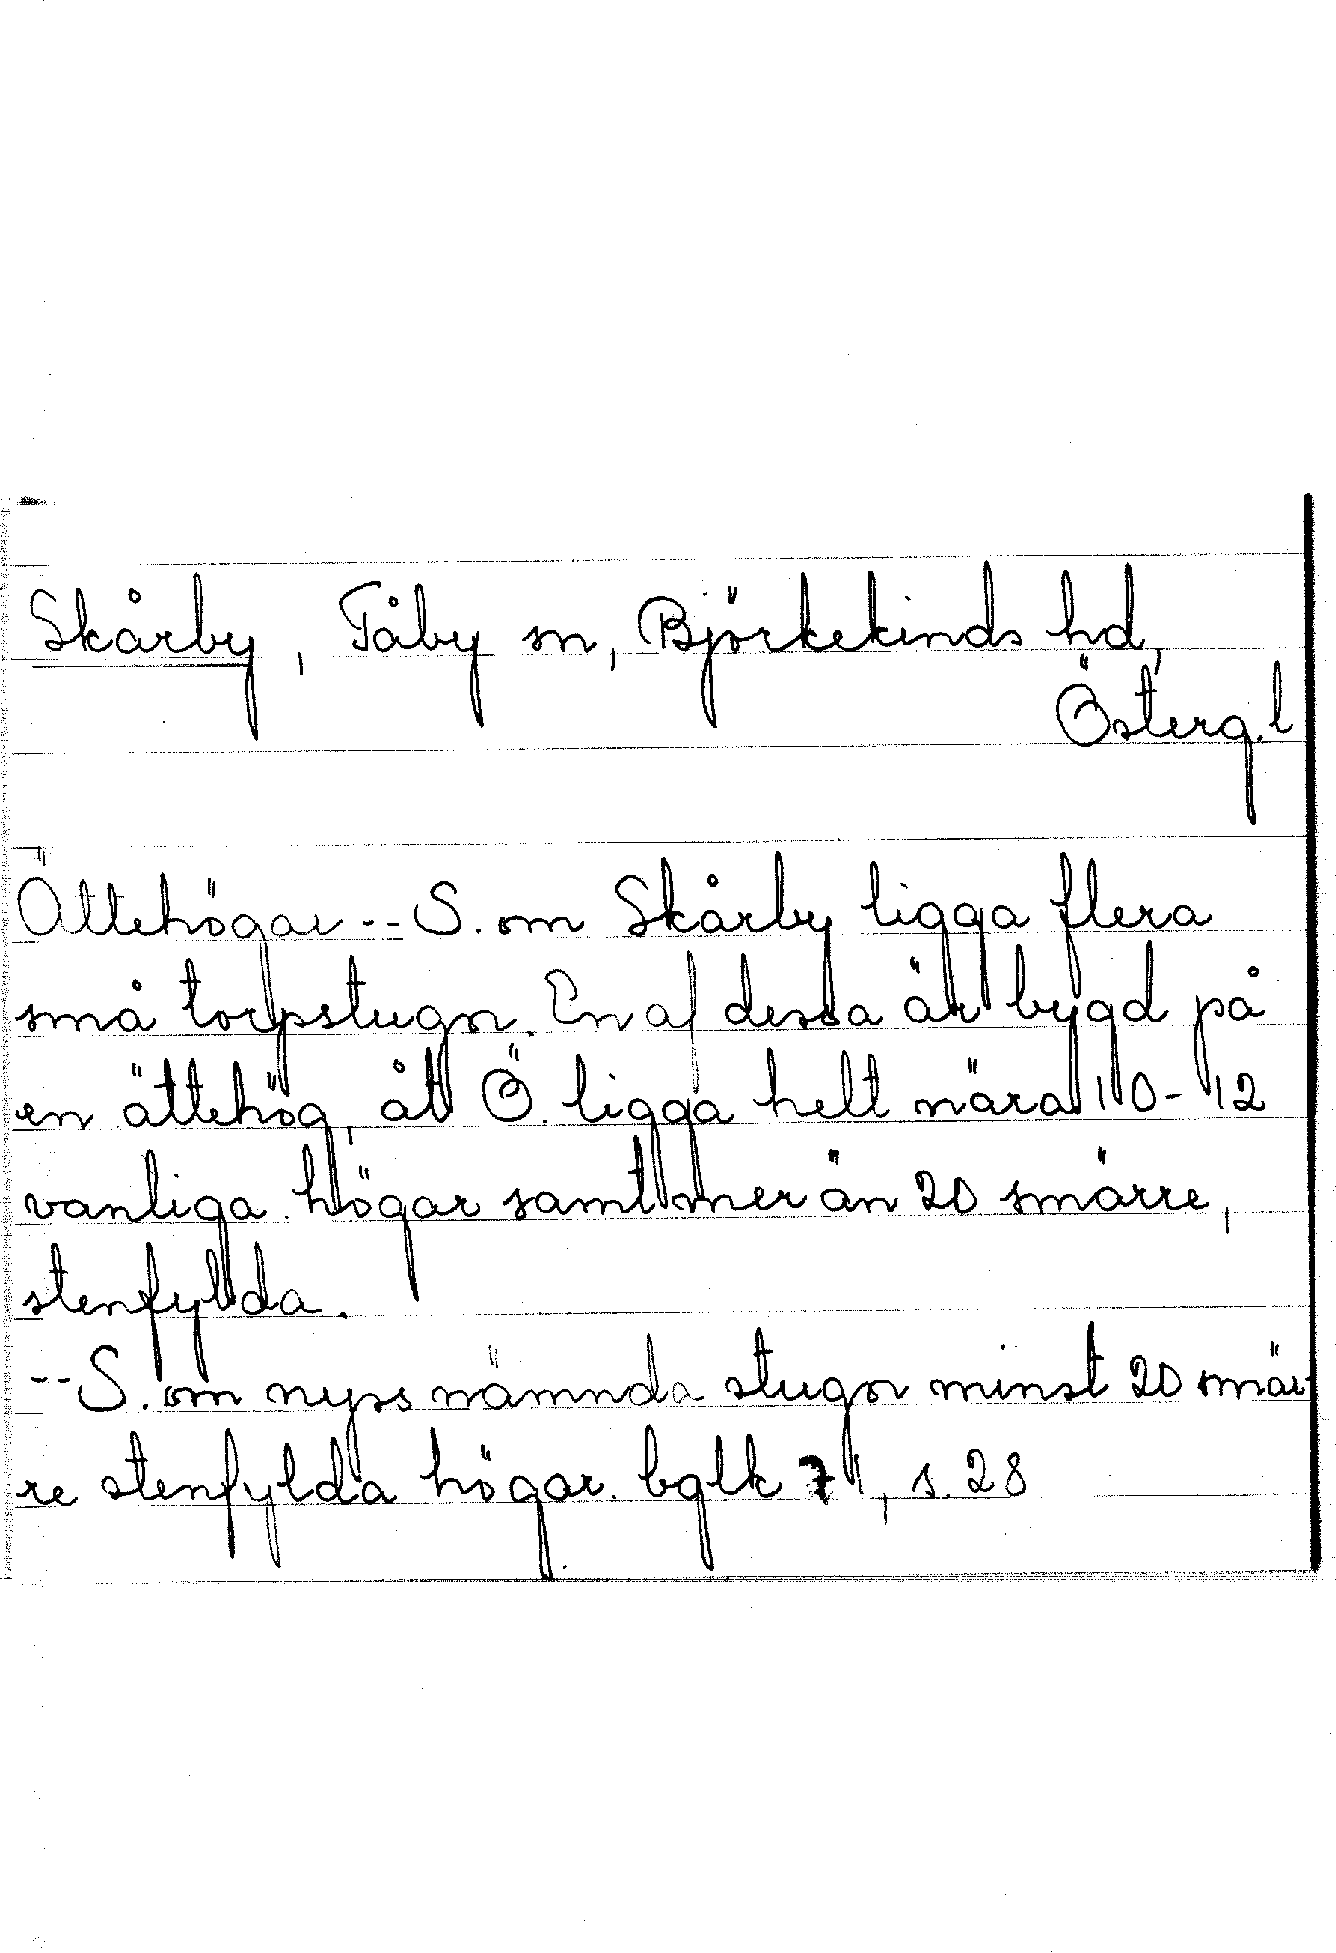 Skårby, Tåby sn, Björkekinds hd,
Österg.l
Ättehögar -- S. om Skårby ligga flera
små torpstugor. En af dessa är bygd på
en ättehög, åt Ö. ligga helt nära 10-12
vanliga högar samt mer än 20 smärre,
stenfylda.
-- S. om nyss nämnda stugor minst 20 smär
re stenfylda högar. bglk 71, s. 28